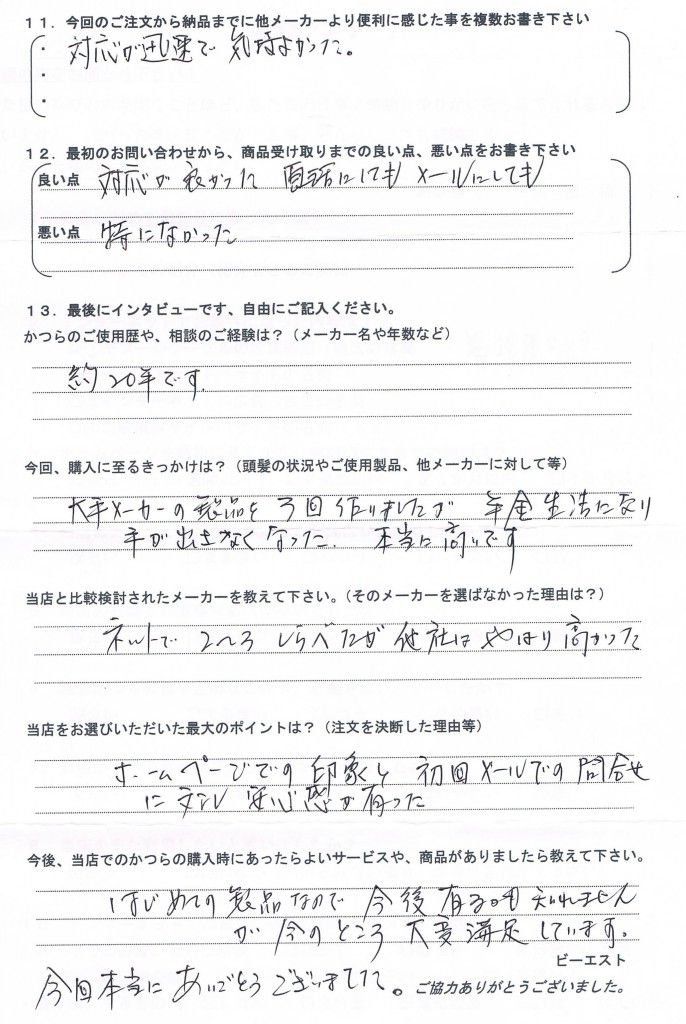 １１．今回のご注文から納品までに他メーカーより便利に感じた事を複数お書き下さい
・対応が迅速で気持よかった。
・
・
１２．最初のお問い合わせから、商品受け取りまでの良い点、悪い点をお書き下さい
良い点 対応が良かった 電話にしても メールにしても
悪い点 特になかった
１３．最後にインタビューです、自由にご記入ください。
かつらのご使用歴や、相談のご経験は？（メーカー名や年数など）
約20年です。
今回、購入に至るきっかけは？（頭髪の状況やご使用製品、他メーカーに対して等）
大手メーカーの製品を3回作りましたが 年金生活になり
手が出せなくなった。 本当に高いです
当店と比較検討されたメーカーを教えて下さい。（そのメーカーを選ばなかった理由は？）
ネットで 2〜3 しらべたが 他社は やはり 高かった
当店をお選びいただいた最大のポイントは？（注文を決断した理由等）
ホームページでの 印象と 初回メールでの問合せ
に対し 安心感が有った
今後、当店でのかつらの購入時にあったらよいサービスや、商品がありましたら教えて下さい。
はじめての製品なので 今後有るかも知れません
が 今のところ 大変満足しています。
ビーエスト
今回本当にありがとうございました。
ご協力ありがとうございました。